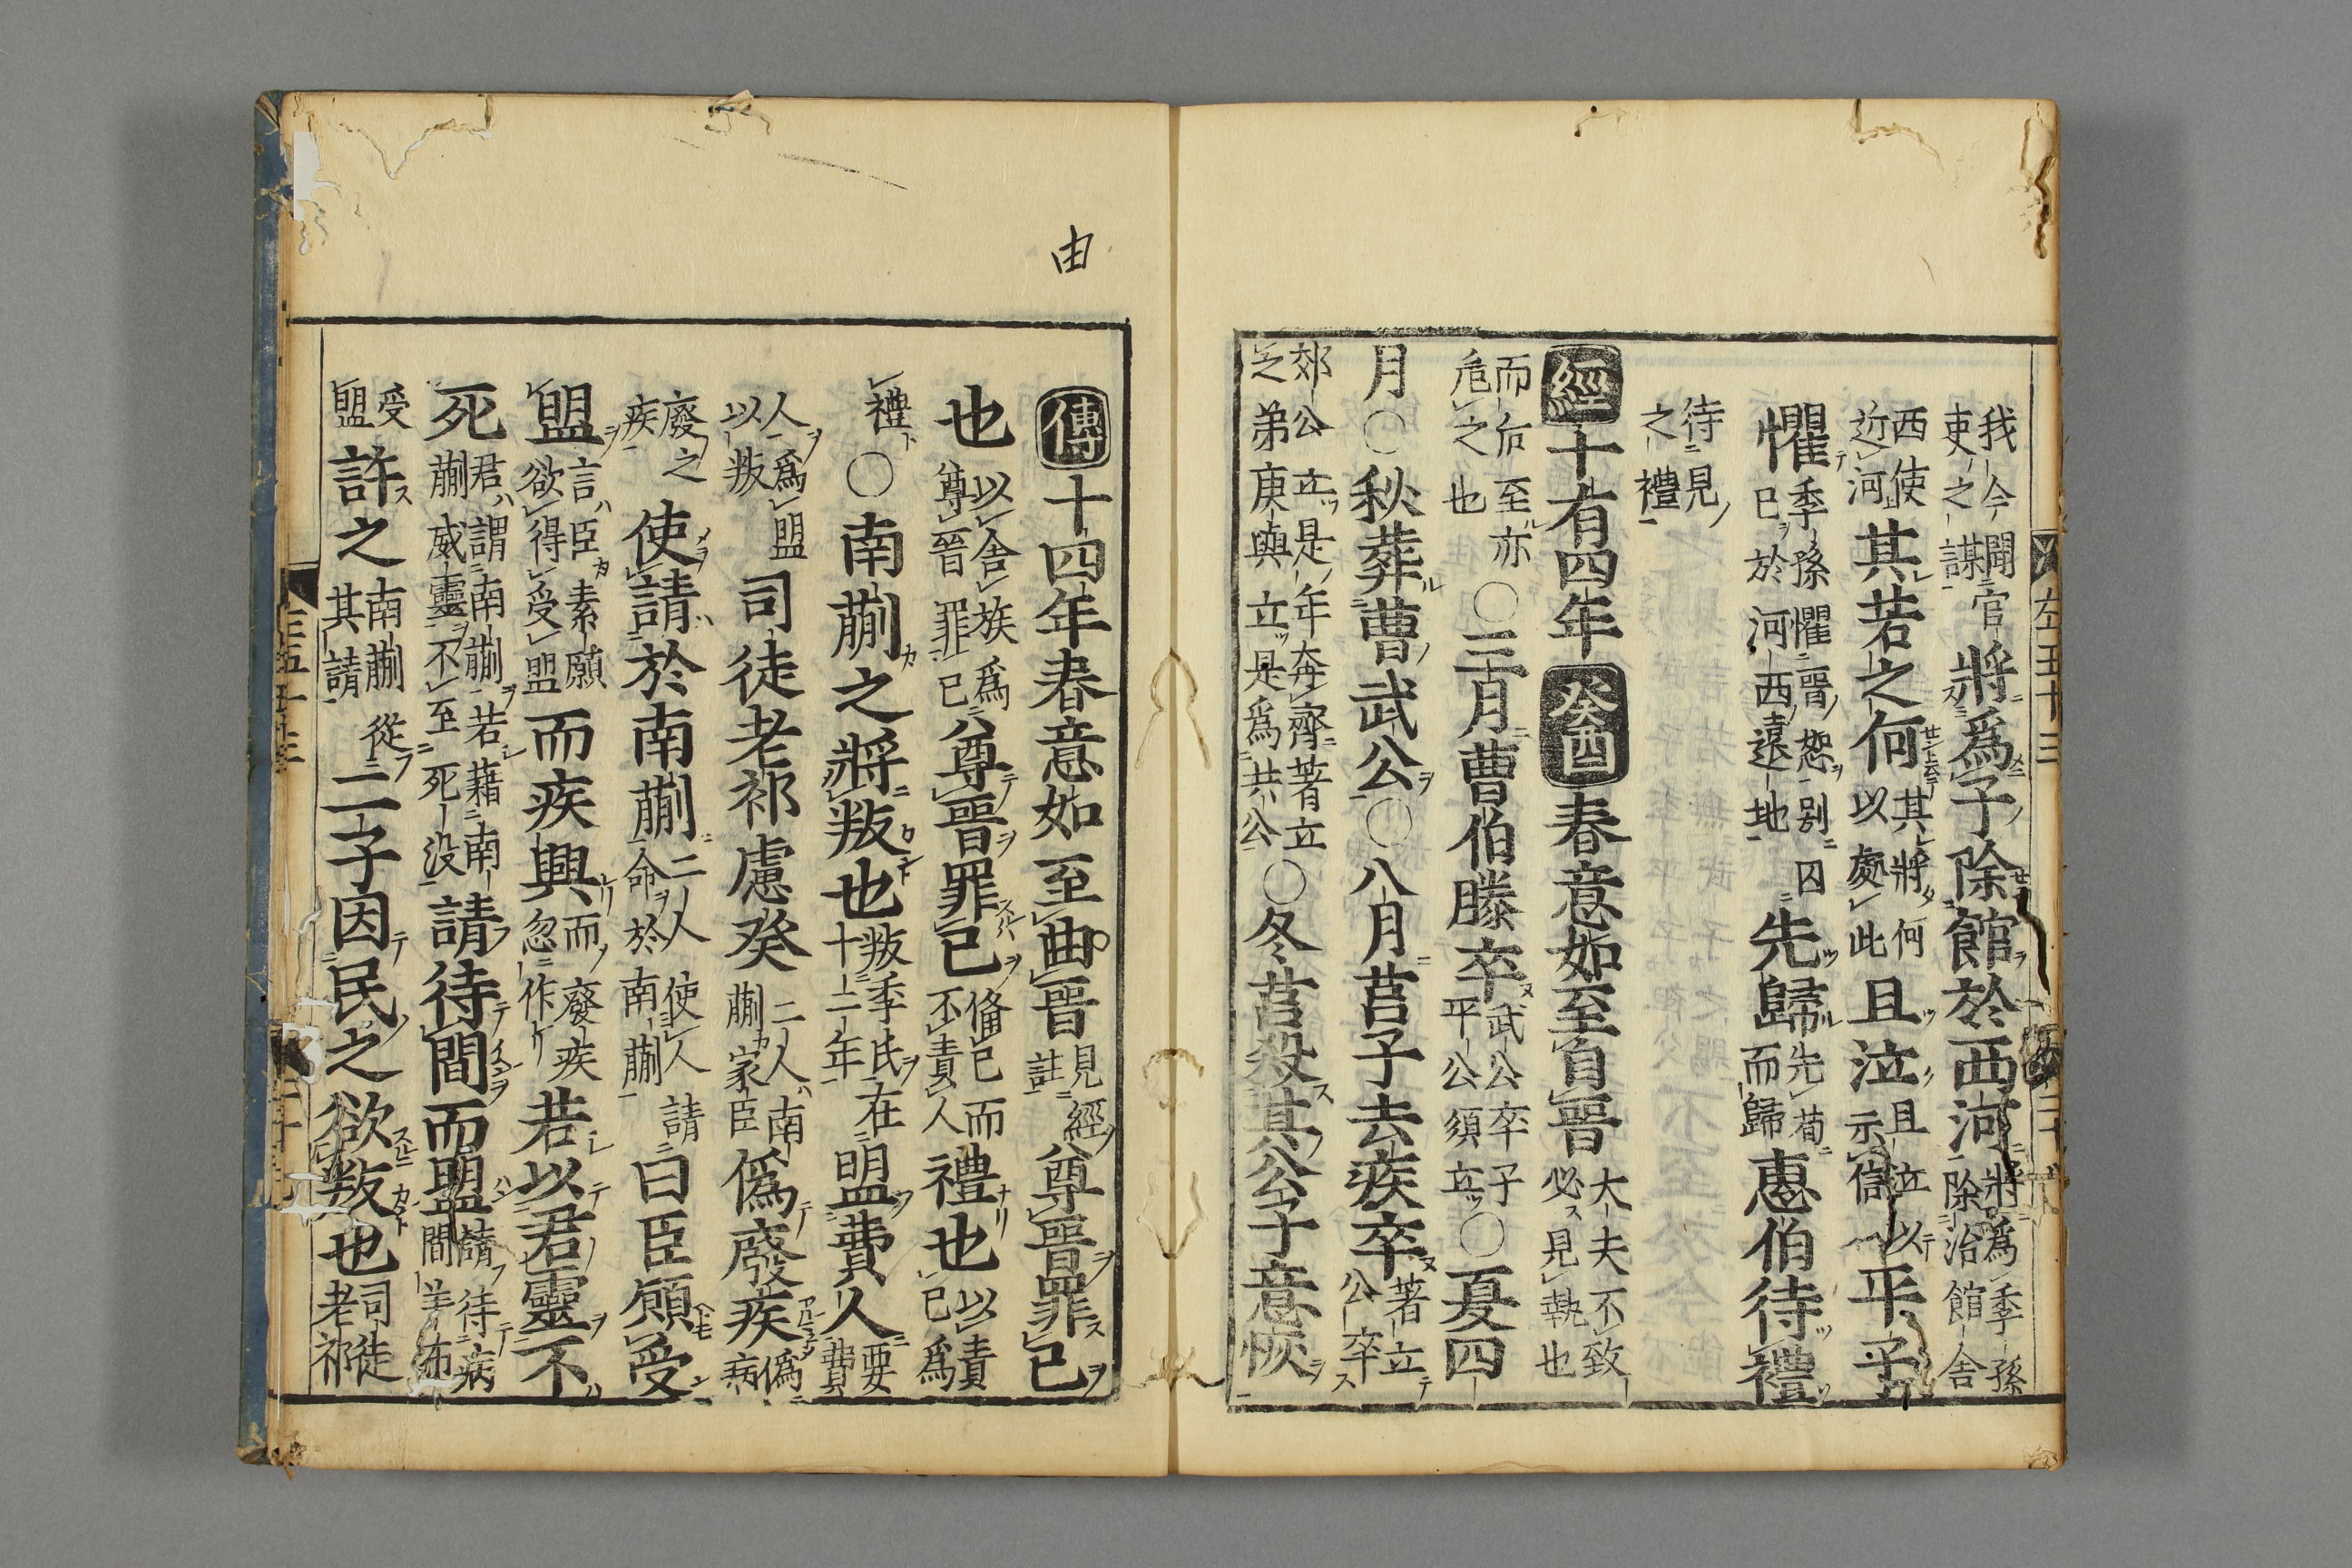 我今聞官吏之謀將爲子除館於西河將爲季孫除治館舍
西使近河其若之何其將何以處此且泣且泣以示信平子
懼季孫懼晋恕別囚已於河西遠地先歸先荀而歸惠伯待禮
待見之禮
經十有四年癸酉春意如至自晋大夫不致必見執也
而后至亦危之也〇三月曹伯滕卒武公卒子平公須立〇夏四
月〇秋葬曹武公〇八月莒子去疾卒著立公卒
郊公立是年奔齊著立之弟庚輿立是爲共公〇冬莒殺其公子意恢
由
傳十四年春意如至曲晋見經註尊晋罪已
也以舍族爲尊晋罪已尊晋罪已俻已而不責人禮也以責已爲
禮〇南蒯之將叛也叛季氏在十二年盟費人要費
人爲盟以叛司徒老祁慮癸二人南蒯家臣僞廢疾僞病
廢之疾使請於南蒯二人使人命於南蒯請曰臣願受
盟言臣素願欲得受盟而疾興而廢疾忽作若以君靈不
死君謂南蒯若藉南蒯威靈不至死没請待間而盟請待病間差布
受盟許之南蒯從其請二子因民之欲叛也司徒老祁